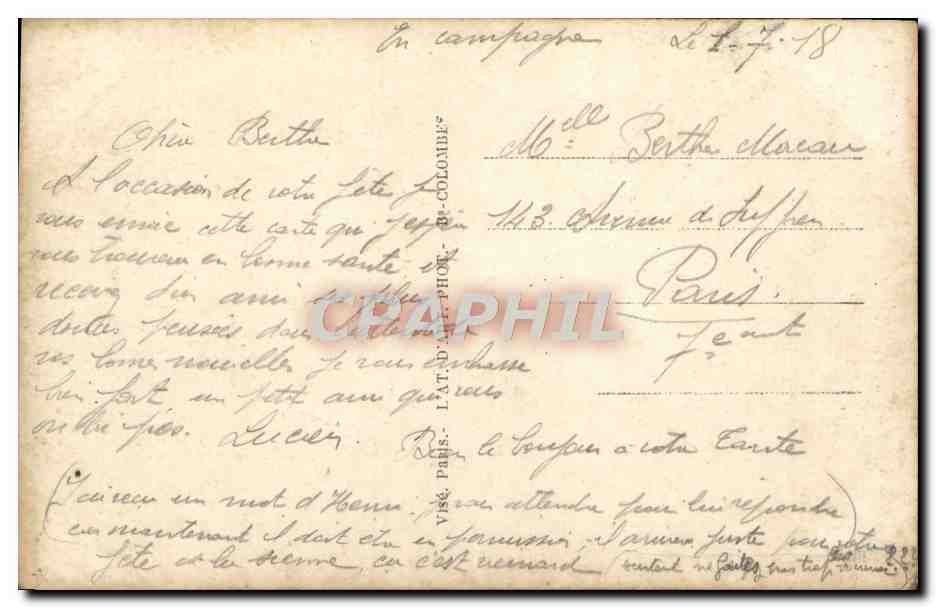 En campagne Le 1-7-18
Chère Berthe
A l'occasion de votre fête je
vous envoie cette carte qui j'espère
vous trouvera en bonne santé et
recevez d'un ami ses plus
douces pensées dans l'attente de
vos bonnes nouvelles je vous embrasse
bien fort un petit ami qui vous
oublie pas. Lucien
Bien le bonjour à votre Tante
(J'ai reçu un mot d'Henri, je vais attendre pour lui répondre
car maintenant il doit être en permission, il arrivera juste pour votre
fête et la sienne, ça c'est veinard (surtout ne pas trop
Melle Berthe Macau
143. Avenue de Suffren
Paris.
7e art
VISÉ. PARIS.- L'AT. D'ART. PHOT.- Bs-COLOMBES
CPAPHIL